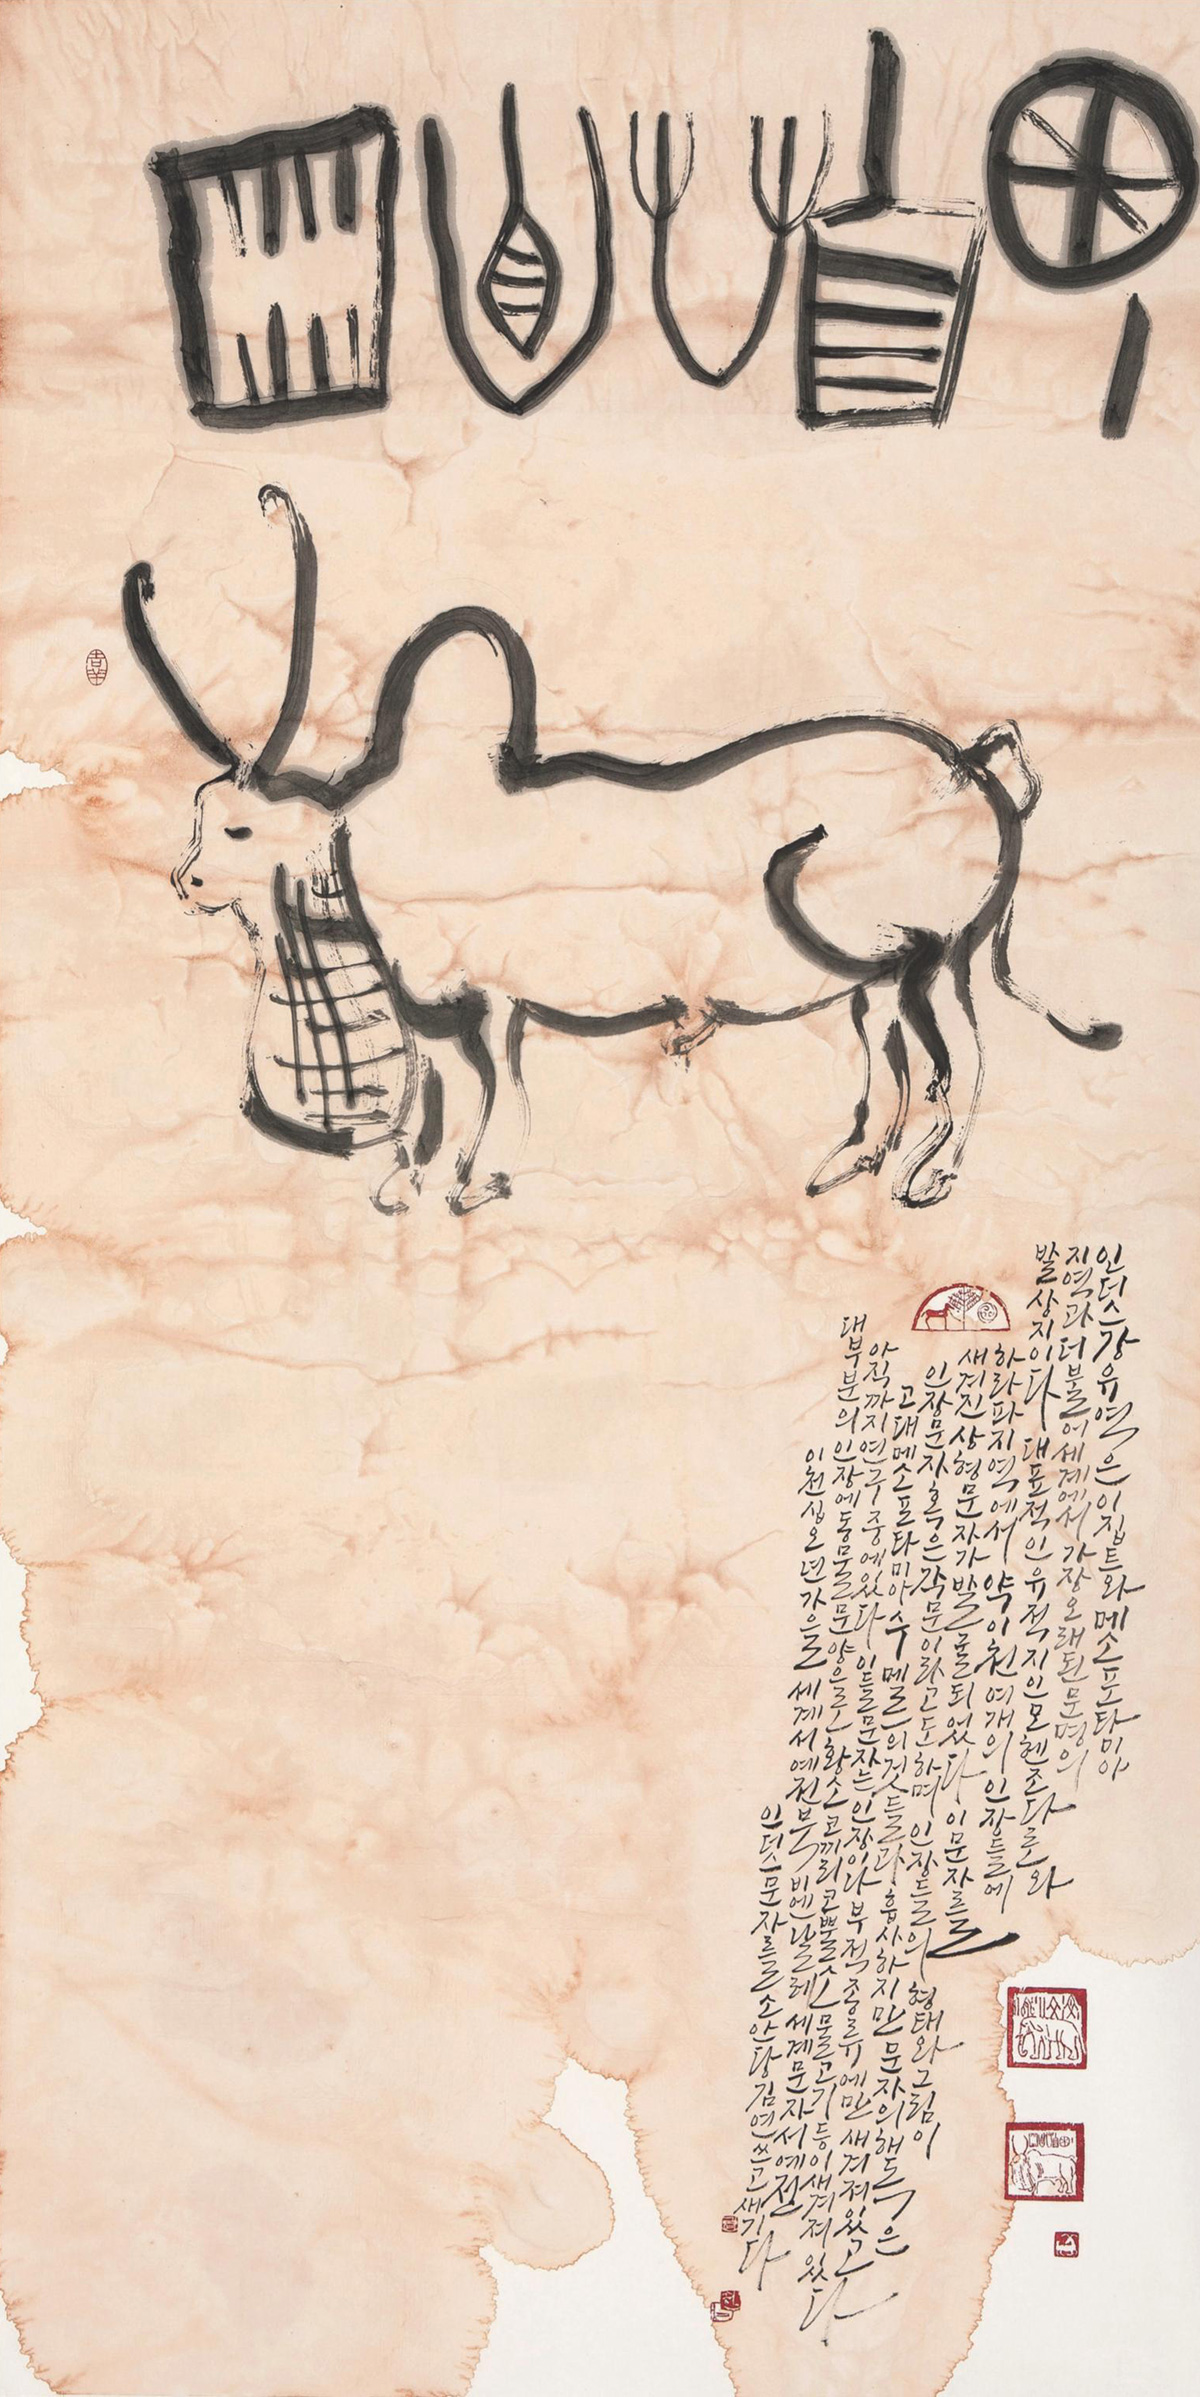 인더스강 유역은 이집트와 메소포타미아
지역과 더불어 세계에서 가장 오래된 문명의
발상지이다 대표적인 유적지인 모헨조다로와
하라파 지역에서 약 이천여개의 인장들에
새겨진 상형문자가 발굴되었다 이 문자를
인장문자 혹은 각문이라고도 하며 인장들의 형태와 그림이
고대 메소포타미아 수메르의 것들과 흡사하지만 문자의 해독은
아직까지 연구 중에 있다 이들 문자는 인장이나 부적 종류에만 새겨져 있고
대부분의 인장에 동물 문양으로 황소 코끼리 코뿔소 물고기 등이 새겨져 있다
이천십오년 가을 세계서예전북비엔날레 세계문자서예전
인더스문자를 소안당 김연 쓰고 새기다